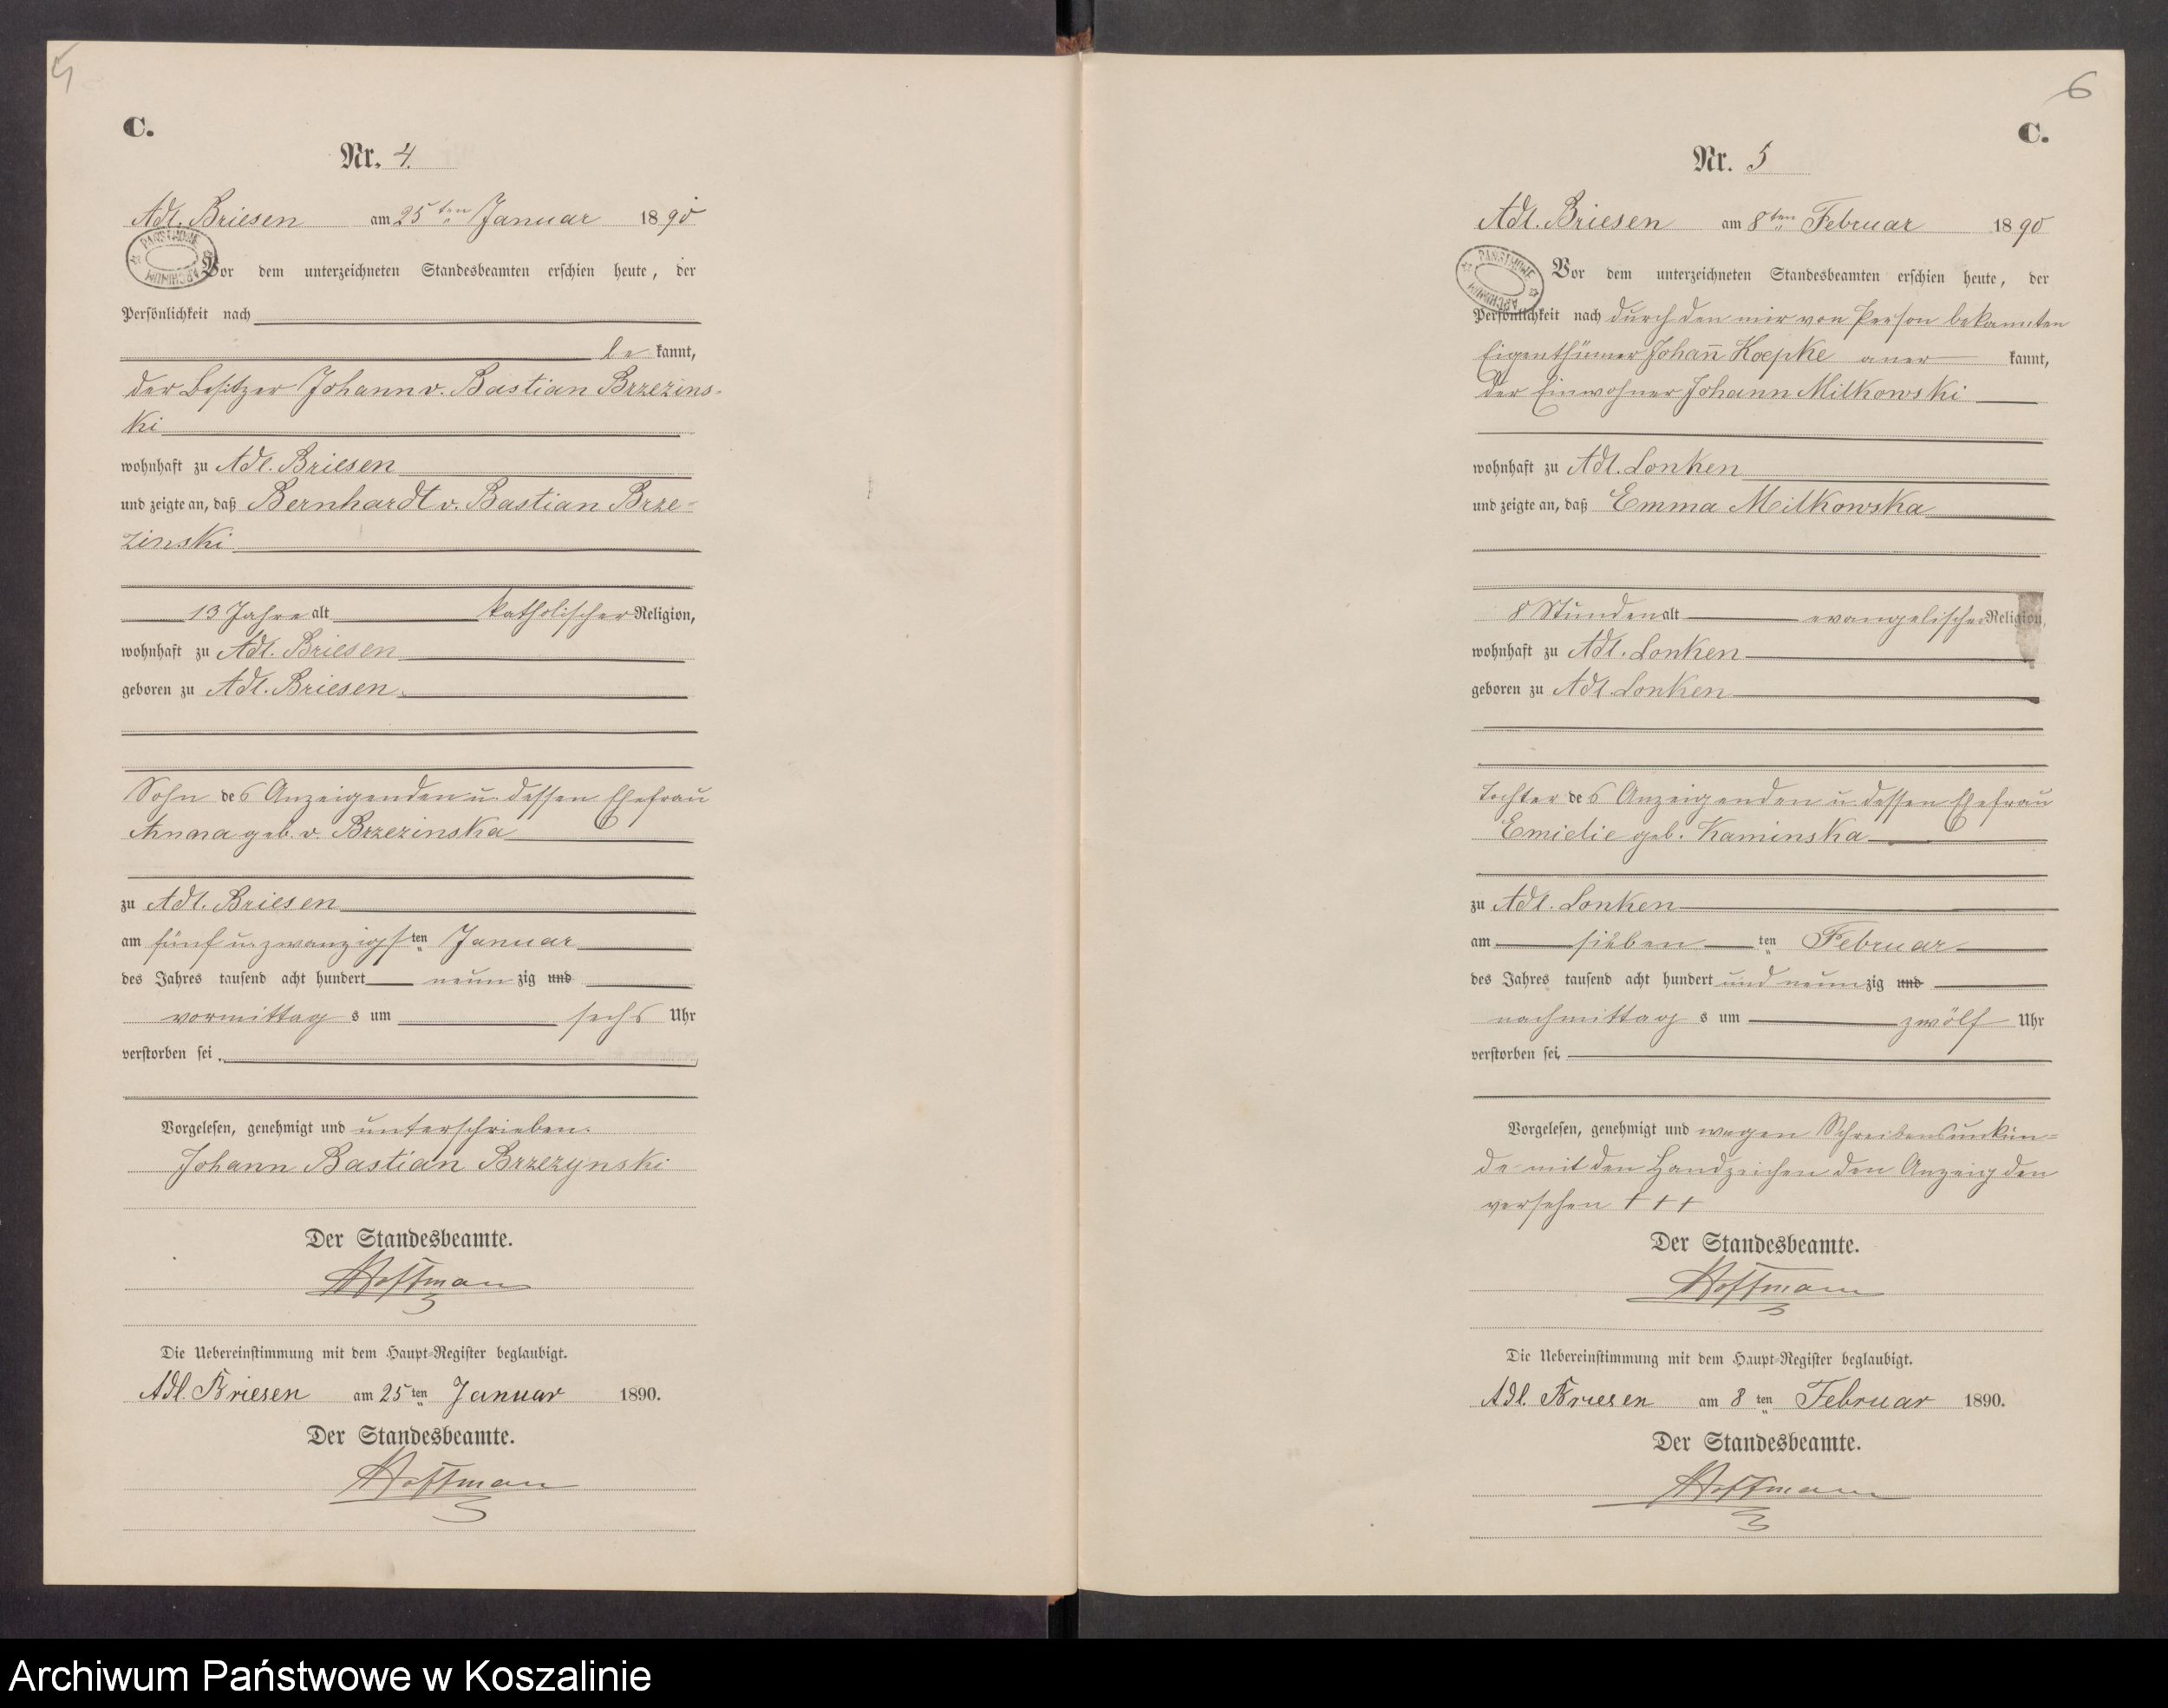 5
C.
Nr. 4.
Adl. Briesen am 25ten Januar 1890
PAŃSTWOWE ARCHIWUM
Vor dem unterzeichneten Standesbeamten erschien heute, der
Persönlichkeit nach
be kannt,
der Besitzer Johann v. Bastian Brzezins-
ki
wohnhaft zu Adl. Briesen
und zeigte an, daß Bernhardt v. Bastian Brze-
zinski
13 Jahre alt katholischer Religion,
wohnhaft zu Adl. Briesen
geboren zu Adl. Briesen
Sohn des Anzeigenden u. dessen Ehefrau
Anna geb. v. Brzezinska
zu Adl. Briesen
am fünf u. zwanzigsten Januar
des Jahres tausend acht hundert neun zig und
vormittag s um sechs Uhr
verstorben sei.
Vorgelesen, genehmigt und unterschrieben.
Johann Bastian Brzezynski
Der Standesbeamte.
Hoffmann
Die Uebereinstimmung mit dem Haupt-Register beglaubigt.
Adl. Briesen am 25 ten Januar 1890.
Der Standesbeamte.
Hoffmann
6
C.
Nr. 5
Adl. Briesen am 8ten Februar 1890
PAŃSTWOWE ARCHIWUM
Vor dem unterzeichneten Standesbeamten erschien heute, der
Persönlichkeit nach durch den mir von Person bekannten
Eigenthümer Johann Koepke aner kannt,
der Einwohner Johann Milkowski
wohnhaft zu Adl. Lonken
und zeigte an, daß Emma Milkowska
8 Stunden alt evangelischer Religion,
wohnhaft zu Adl. Lonken
geboren zu Adl. Lonken
Tochter des Anzeigenden u. dessen Ehefrau
Emielie geb. Kaminska
zu Adl. Lonken
am sieben ten Februar
des Jahres tausend acht hundert und neun zig und
nachmittag s um zwölf Uhr
verstorben sei.
Vorgelesen, genehmigt und wegen Schreibensunkun-
de mit den Handzeichen den Anzeigden
versehen + + +
Der Standesbeamte.
Hoffmann
Die Uebereinstimmung mit dem Haupt-Register beglaubigt.
Adl. Briesen am 8 ten Februar 1890.
Der Standesbeamte.
Hoffmann
Archiwum Państwowe w Koszalinie